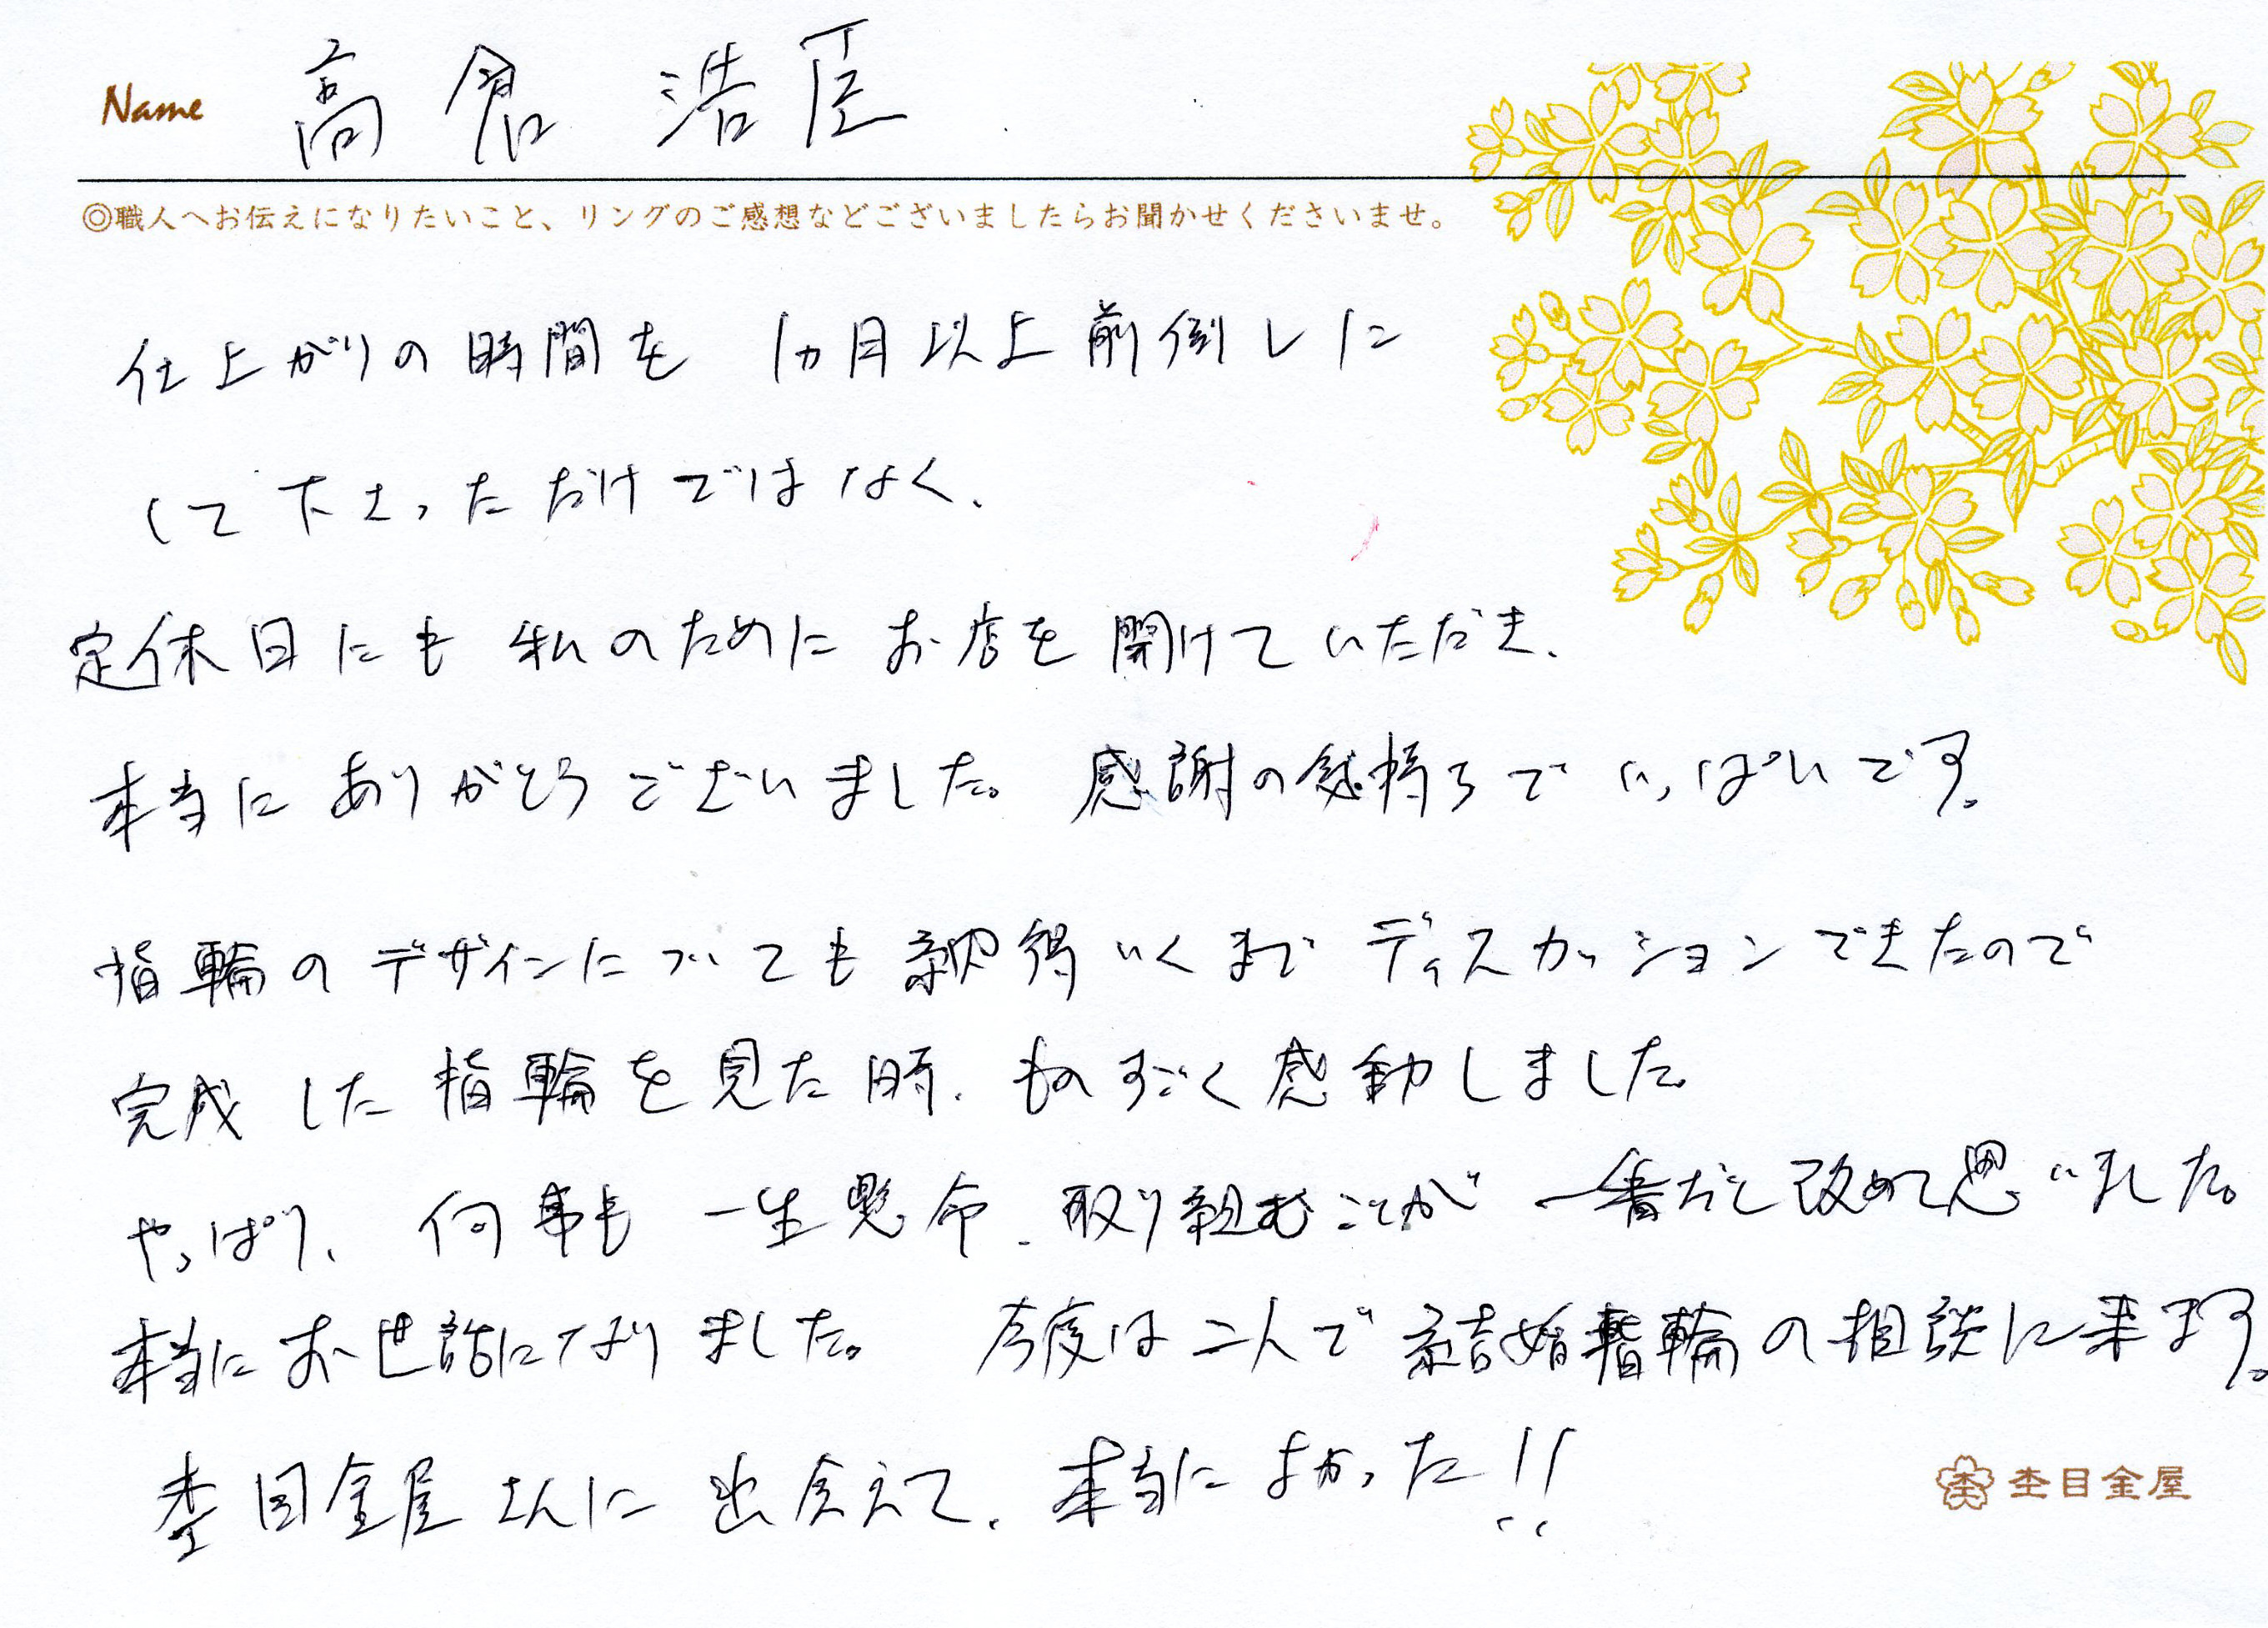 Name 高倉 浩臣
◎職人へお伝えになりたいこと、リングのご感想などございましたらお聞かせくださいませ。
仕上がりの時間を 1ヵ月以上前倒しに
して下さっただけではなく、
定休日にも私のためにお店を開けていただき、
本当にありがとうございました。感謝の気持ちでいっぱいです。
指輪のデザインについても納得いくまでディスカッションできたので
完成した指輪を見た時、ものすごく感動しました。
やっぱり、何事も一生懸命、取り組むことが一番だと改めて思いました。
本当にお世話になりました。 今度は二人で結婚指輪の相談に来ます。
杢目金屋さんに出会えて、本当によかった!!
杢目金屋